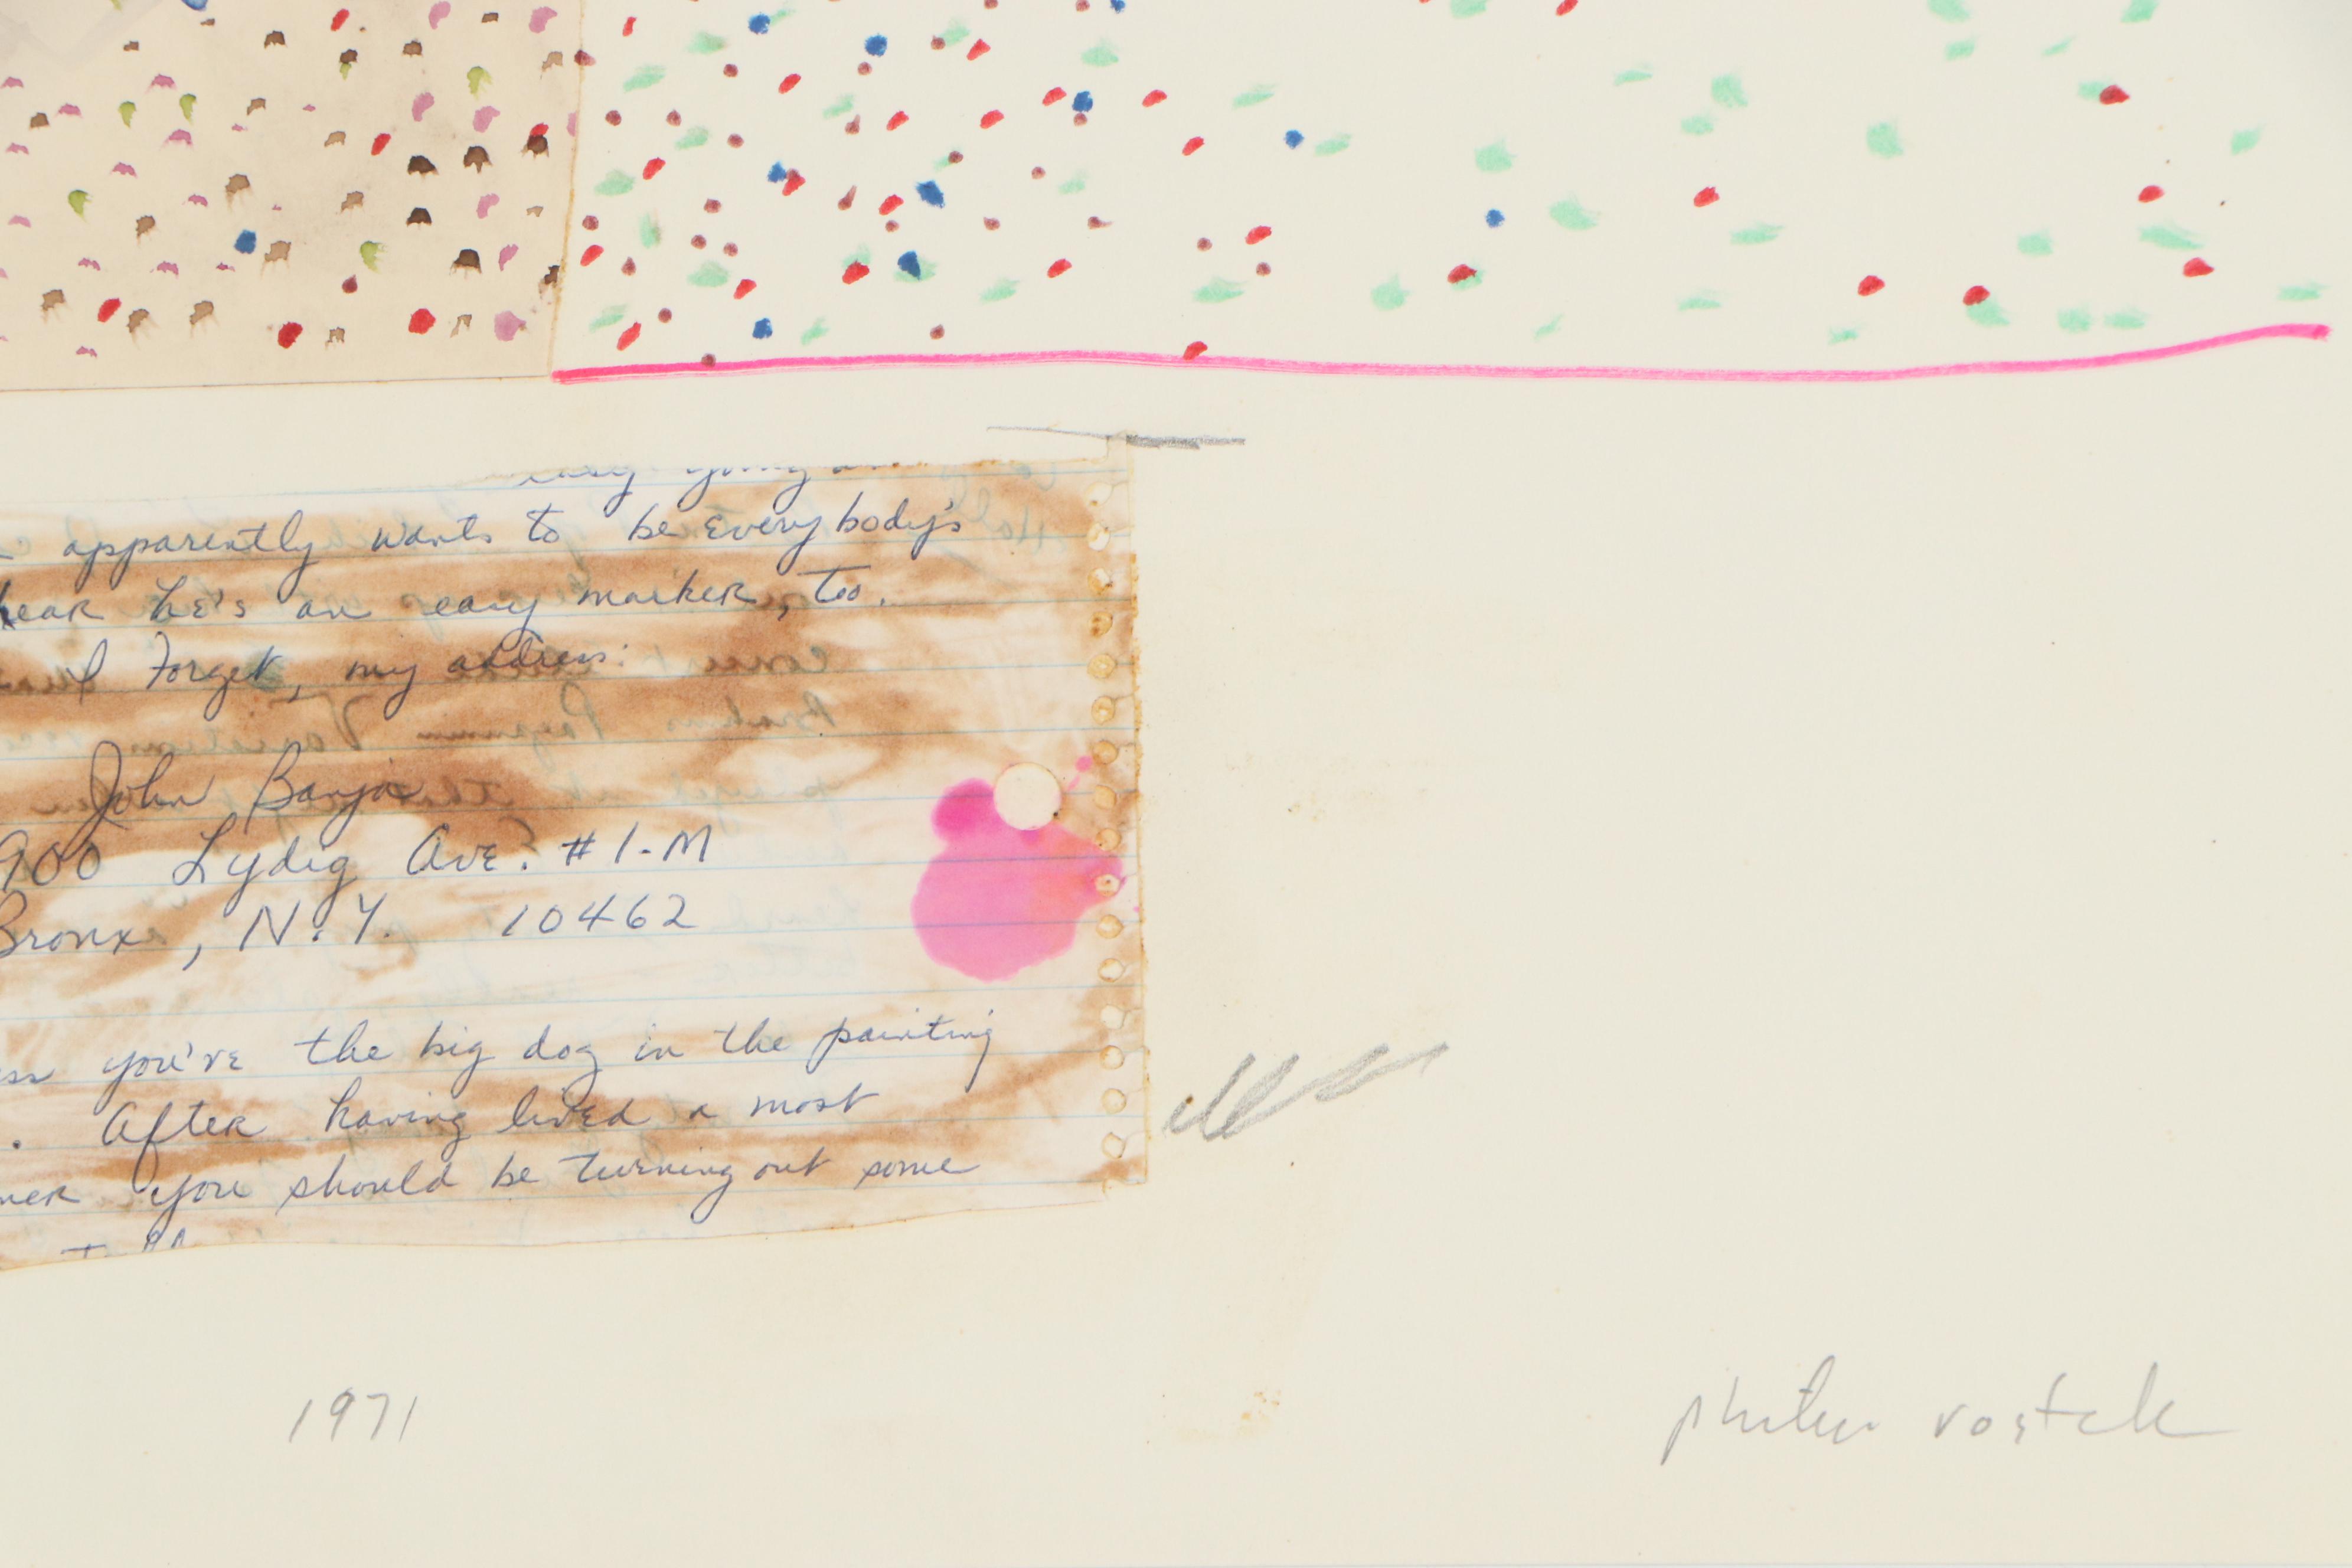 easy going
apparently wants to be Everybody's
hear he's an easy marker, too.
I Forget, my address:
John Banja
900 Lydig Ave. #1-M
Bronx, N.Y. 10462
you're the big dog in the painting
. After having lived a most
you should be turning out some
1971
vostek